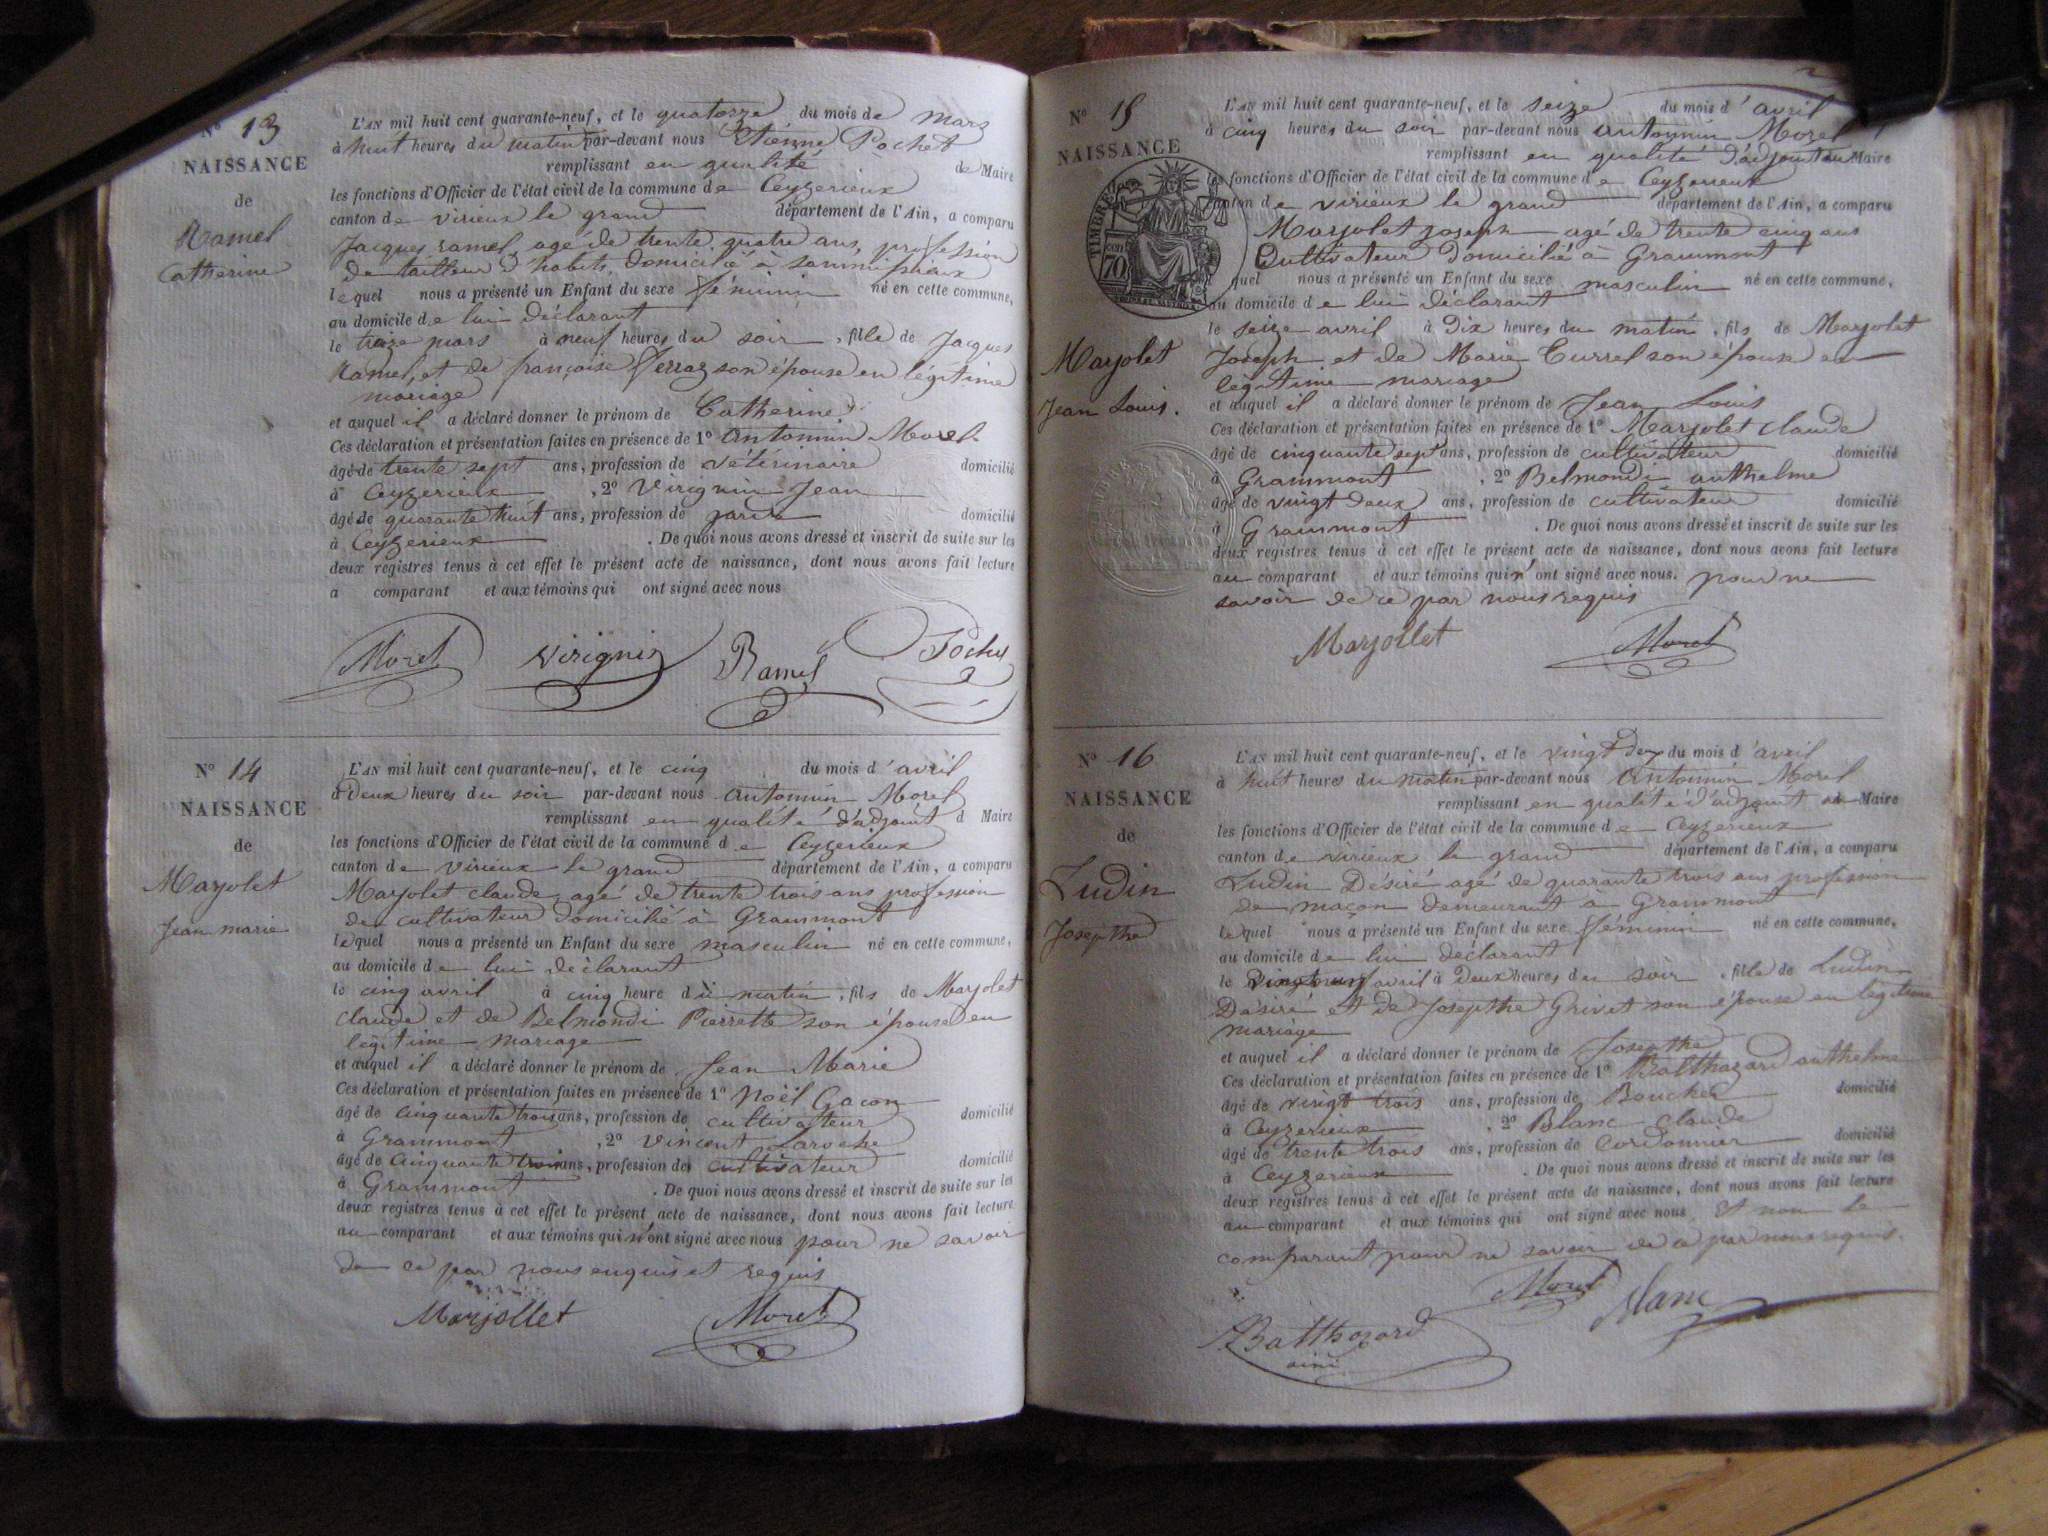 N° 13
NAISSANCE
de
Ramel
Catherine
L'AN mil huit cent quarante-neuf, et le quatorze du mois de mars
à huit heures du matin par-devant nous Etienne Pochet
remplissant en qualité de Maire
les fonctions d'Officier de l'état civil de la commune de Ceyzerieux
canton de virieux le grand département de l'Ain, a comparu
Jacques ramel, agé de trente quatre ans, profession
de tailleur d'habits, domicilié à
lequel nous a présenté un Enfant du sexe féminin né en cette commune,
au domicile de lui déclarant
le treize mars à neuf heures du soir, fille de Jacques
Ramel, et de françoise ferraz son épouse en légitime
mariage
et auquel il a déclaré donner le prénom de Catherine
Ces déclaration et présentation faites en présence de 1° Antonnin Morel
âgé de trente sept ans, profession de vétérinaire domicilié
à Ceyzerieux, 2° Virignin Jean
âgé de quarante huit ans, profession de garde domicilié
à Ceyzerieux. De quoi nous avons dressé et inscrit de suite sur les
deux registres tenus à cet effet le présent acte de naissance, dont nous avons fait lecture
a comparant et aux témoins qui ont signé avec nous
Morel Virignin Ramel Pochet
N° 14
NAISSANCE
de
Marjolet
Jean marie
L'AN mil huit cent quarante-neuf, et le cinq du mois d'avril
à Deux heures du soir par-devant nous Antonnin Morel
remplissant en qualité d'adjoint d Maire
les fonctions d'Officier de l'état civil de la commune de Ceyzerieux
canton de Virieux le grand département de l'Ain, a comparu
Marjolet claude, agé de trente trois ans profession
de cultivateur domicilié à Grammont
lequel nous a présenté un Enfant du sexe masculin né en cette commune,
au domicile de lui déclarant
le cinq avril à cinq heure du matin, fils de Marjolet
claude et de Belmondi Pierrette son épouse en
légitime mariage
et auquel il a déclaré donner le prénom de Jean Marie
Ces déclaration et présentation faites en présence de 1° Noël Gacon
âgé de cinquante trois ans, profession de cultivateur domicilié
à Grammont, 2° Vincent Laroche
âgé de cinquante trois ans, profession de cultivateur domicilié
à Grammont. De quoi nous avons dressé et inscrit de suite sur les
deux registres tenus à cet effet le présent acte de naissance, dont nous avons fait lecture
au comparant et aux témoins qui n'ont signé avec nous pour ne savoir
de ce par nous enquis et requis
Marjollet Morel
N° 15
NAISSANCE
TIMBRE
70
Marjolet
Jean Louis.
L'AN mil huit cent quarante-neuf, et le seize du mois d'avril
à cinq heures du soir par-devant nous Antonnin Morel
remplissant en qualité d'adjoint au Maire
les fonctions d'Officier de l'état civil de la commune de Ceyzerieux
canton de virieux le grand département de l'Ain, a comparu
Marjolet joseph agé de trente cinq ans
Cultivateur Domicilié à Grammont
quel nous a présenté un Enfant du sexe masculin né en cette commune,
au domicile de lui déclarant
le seize avril à dix heures du matin, fils de Marjolet
Joseph et de Marie Currel son épouse en
légitime mariage
et auquel il a déclaré donner le prénom de Jean Louis
Ces déclaration et présentation faites en présence de 1° Marjolet claude
âgé de cinquante sept ans, profession de cultivateur domicilié
à Grammont, 2° Belmondi anthelme
âgé de vingt deux ans, profession de cultivateur domicilié
à Grammont. De quoi nous avons dressé et inscrit de suite sur les
deux registres tenus à cet effet le présent acte de naissance, dont nous avons fait lecture
au comparant et aux témoins qui n'ont signé avec nous. pour ne
savoir de ce par nous requis
Marjollet Morel
N° 16
NAISSANCE
de
Ludin
Josepthe
L'AN mil huit cent quarante-neuf, et le vingt deux du mois d'avril
à huit heures du matin par-devant nous Antonnin Morel
remplissant en qualité d'adjoint au Maire
les fonctions d'Officier de l'état civil de la commune de Ceyzerieux
canton de virieux le grand département de l'Ain, a comparu
Ludin Désiré agé de quarante trois ans profession
de maçon demeurant à Grammont
lequel nous a présenté un Enfant du sexe féminin né en cette commune,
au domicile de lui déclarant
le avril à Deux heures du soir, fille de Ludin
Désiré et de Josepthe Grivet son épouse en légitime
mariage
et auquel il a déclaré donner le prénom de Josepthe
Ces déclaration et présentation faites en présence de 1° Balthazard anthelme
âgé de vingt trois ans, profession de Boucher domicilié
à Ceyzerieux, 2° Blanc claude
âgé de trente trois ans, profession de Cordonnier domicilié
à Ceyzerieux. De quoi nous avons dressé et inscrit de suite sur les
deux registres tenus à cet effet le présent acte de naissance, dont nous avons fait lecture
au comparant et aux témoins qui ont signé avec nous Et non le
comparant pour ne savoir de ce par nous requis.
Balthazard Morel Blanc